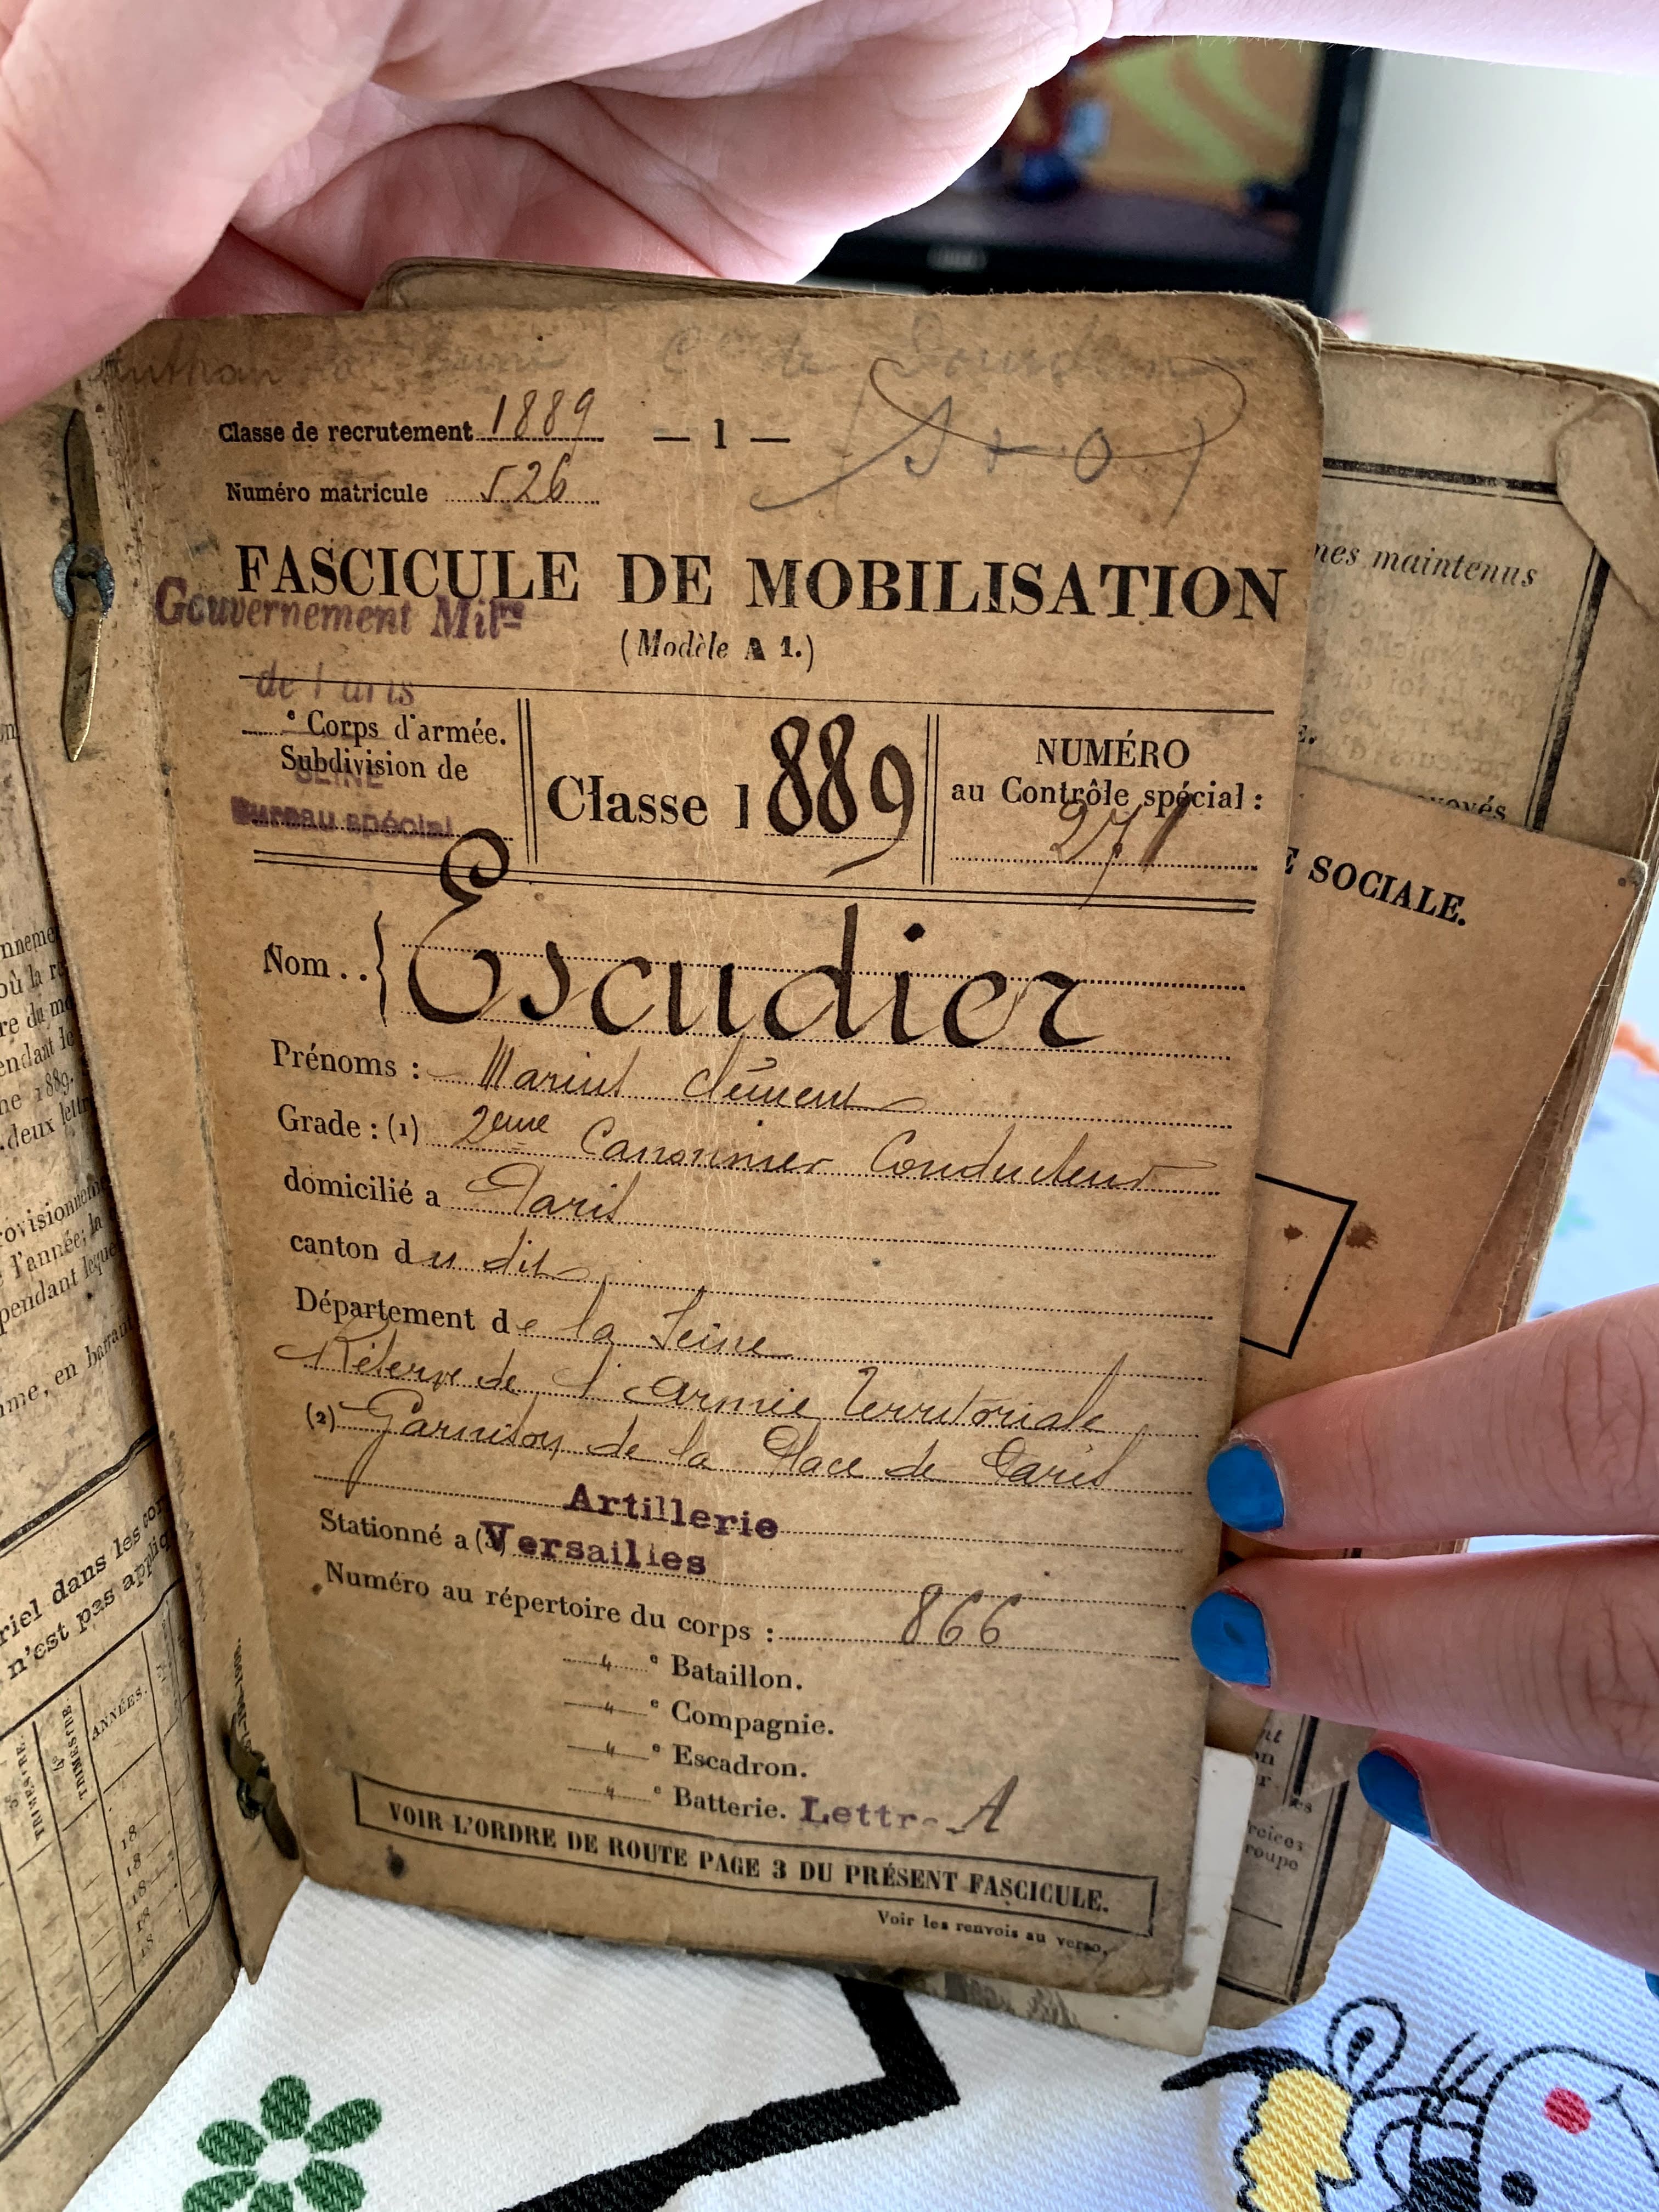 Classe de recrutement 1889
— 1 —
(S & O)
Numéro matricule 526
FASCICULE DE MOBILISATION
Gouvernement Milre
(Modèle A 1.)
de Paris
e Corps d'armée.
Subdivision de
SEINE
Bureau spécial
Classe 1889
NUMÉRO
au Contrôle spécial :
271
Nom .. Escudier
Prénoms : Marius Clément
Grade : (1) 2eme Canonnier Conducteur
domicilié a Paris
canton du dit
Département de la Seine
Réserve de l'Armée Territoriale
(2) Garnison de la Place de Paris
Artillerie
Stationné a (3) Versailles
Numéro au répertoire du corps : 866
" e Bataillon.
" e Compagnie.
" e Escadron.
" e Batterie. Lettre A
VOIR L'ORDRE DE ROUTE PAGE 3 DU PRÉSENT FASCICULE.
Voir les renvois au verso.
mes maintenus
E SOCIALE.
où la
endant le
1889.
deux
l'année; la
pendant
en
riel dans les
n'est pas
TRIMESTRE.
TRIMESTRE.
ANNÉES.
18
18
18
18
18